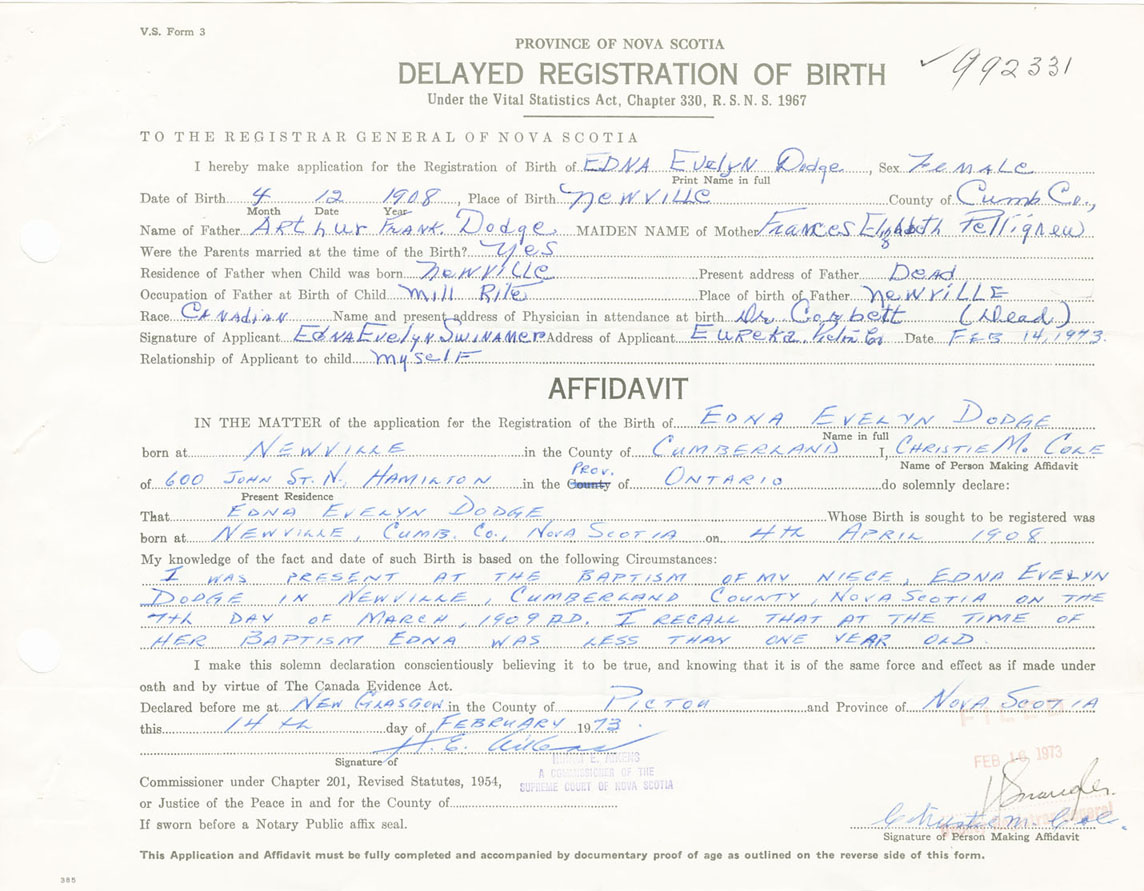 V.S. Form 3
PROVINCE OF NOVA SCOTIA
DELAYED REGISTRATION OF BIRTH
✓992331
Under the Vital Statistics Act, Chapter 330, R. S. N. S. 1967
TO THE REGISTRAR GENERAL OF NOVA SCOTIA
I hereby make application for the Registration of Birth of EDNA EvelyN Dodge, Sex FemALe
Print Name in full
Date of Birth 4 12 1908, Place of Birth NewVILLe County of Cumb Co.,
Month Date Year
Name of Father ArThur FrANK Dodge MAIDEN NAME of Mother FrANces Elizabeth Pettigrew
Were the Parents married at the time of the Birth? Yes
Residence of Father when Child was born NewVILLe Present address of Father DeAd
Occupation of Father at Birth of Child mILL RITe Place of birth of Father NewVILLE
Race CANAdiAN Name and present address of Physician in attendance at birth Dr Corbett (DeAd)
Signature of Applicant EdNA EvelyN SwiNAmer Address of Applicant EureKa Pictou Co Date Feb 14, 1973.
Relationship of Applicant to child myselF
AFFIDAVIT
IN THE MATTER of the application for the Registration of the Birth of EDNA EVELYN DODGE
Name in full
born at NEWVILLE in the County of CUMBERLAND I, CHRISTIE M. COLE
Name of Person Making Affidavit
PROV.
of 600 JOHN ST. N., HAMILTON in the County of ONTARIO do solemnly declare:
Present Residence
That EDNA EVELYN DODGE Whose Birth is sought to be registered was
born at NEWVILLE, CUMB. CO., NOVA SCOTIA on 4th APRIL 1908
My knowledge of the fact and date of such Birth is based on the following Circumstances:
I WAS PRESENT AT THE BAPTISM OF MY NIECE, EDNA EVELYN
DODGE IN NEWVILLE, CUMBERLAND COUNTY, NOVA SCOTIA ON THE
7th DAY OF MARCH, 1909 A.D. I RECALL THAT AT THE TIME OF
HER BAPTISM EDNA WAS LESS THAN ONE YEAR OLD.
I make this solemn declaration conscientiously believing it to be true, and knowing that it is of the same force and effect as if made under
oath and by virtue of The Canada Evidence Act.
Declared before me at NEW GLASGOW in the County of PICTOU and Province of NOVA SCOTIA
this 14th day of FEBRUARY 1973.
FILED
H. E. Aikens
Signature of
FEB 16 1973
Commissioner under Chapter 201, Revised Statutes, 1954,
E. AIKENS
A COMMISSIONER OF THE
SUPREME COURT OF NOVA SCOTIA
or Justice of the Peace in and for the County of
If sworn before a Notary Public affix seal.
Christie M. Cole.
Signature of Person Making Affidavit
This Application and Affidavit must be fully completed and accompanied by documentary proof of age as outlined on the reverse side of this form.
385